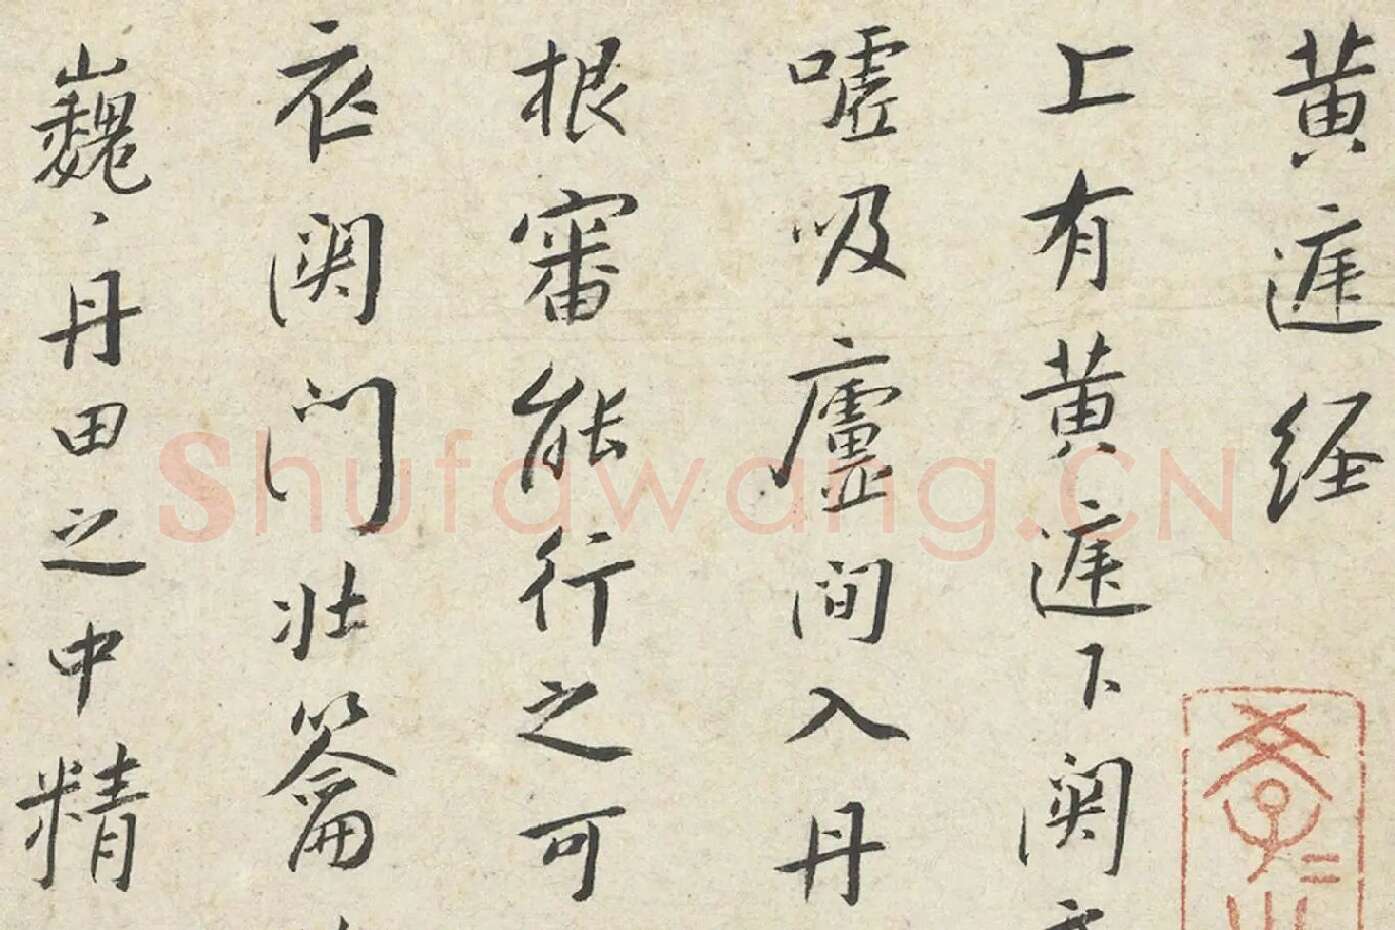 黄庭经
上有黄庭下关
嘘吸庐间入丹
根审能行之可
衣关门壮籥
巍丶丹田之中精
Shufawang.CN